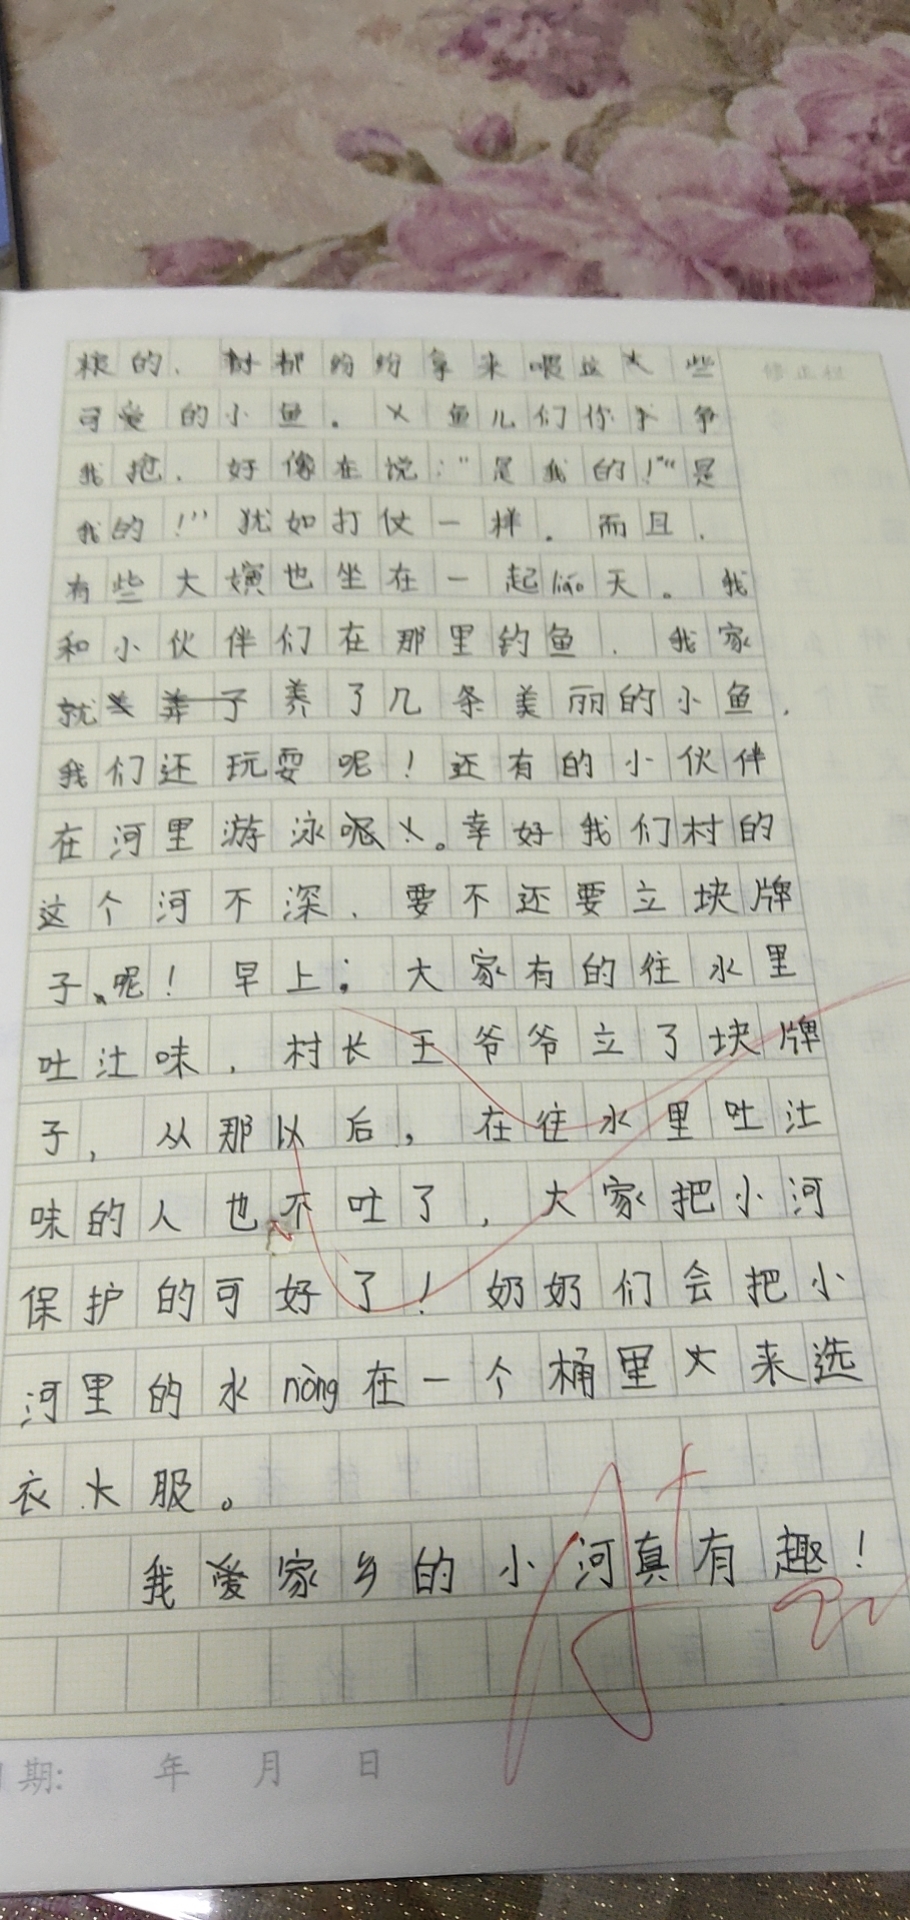 粮的、都纷纷拿来喂这些
修正栏
可爱的小鱼。鱼儿们你我争
我抢，好像在说：“是我的！”“是
我的！”犹如打仗一样。而且，
有些大嫂也坐在一起liáo天。我
和小伙伴们在那里钓鱼，我家
就养了几条美丽的小鱼，
我们还玩耍呢！还有的小伙伴
在河里游泳。幸好我们村的
这个河不深，要不还要立块牌
子、呢！早上：大家有的往水里
吐江味，村长王爷爷立了块牌
子，从那以后，在往水里吐江
味的人也不吐了，大家把小河
保护的可好了！奶奶们会把小
河里的水nòng在一个桶里来选
衣服。
我爱家乡的小河真有趣！
A+
期: 年 月 日